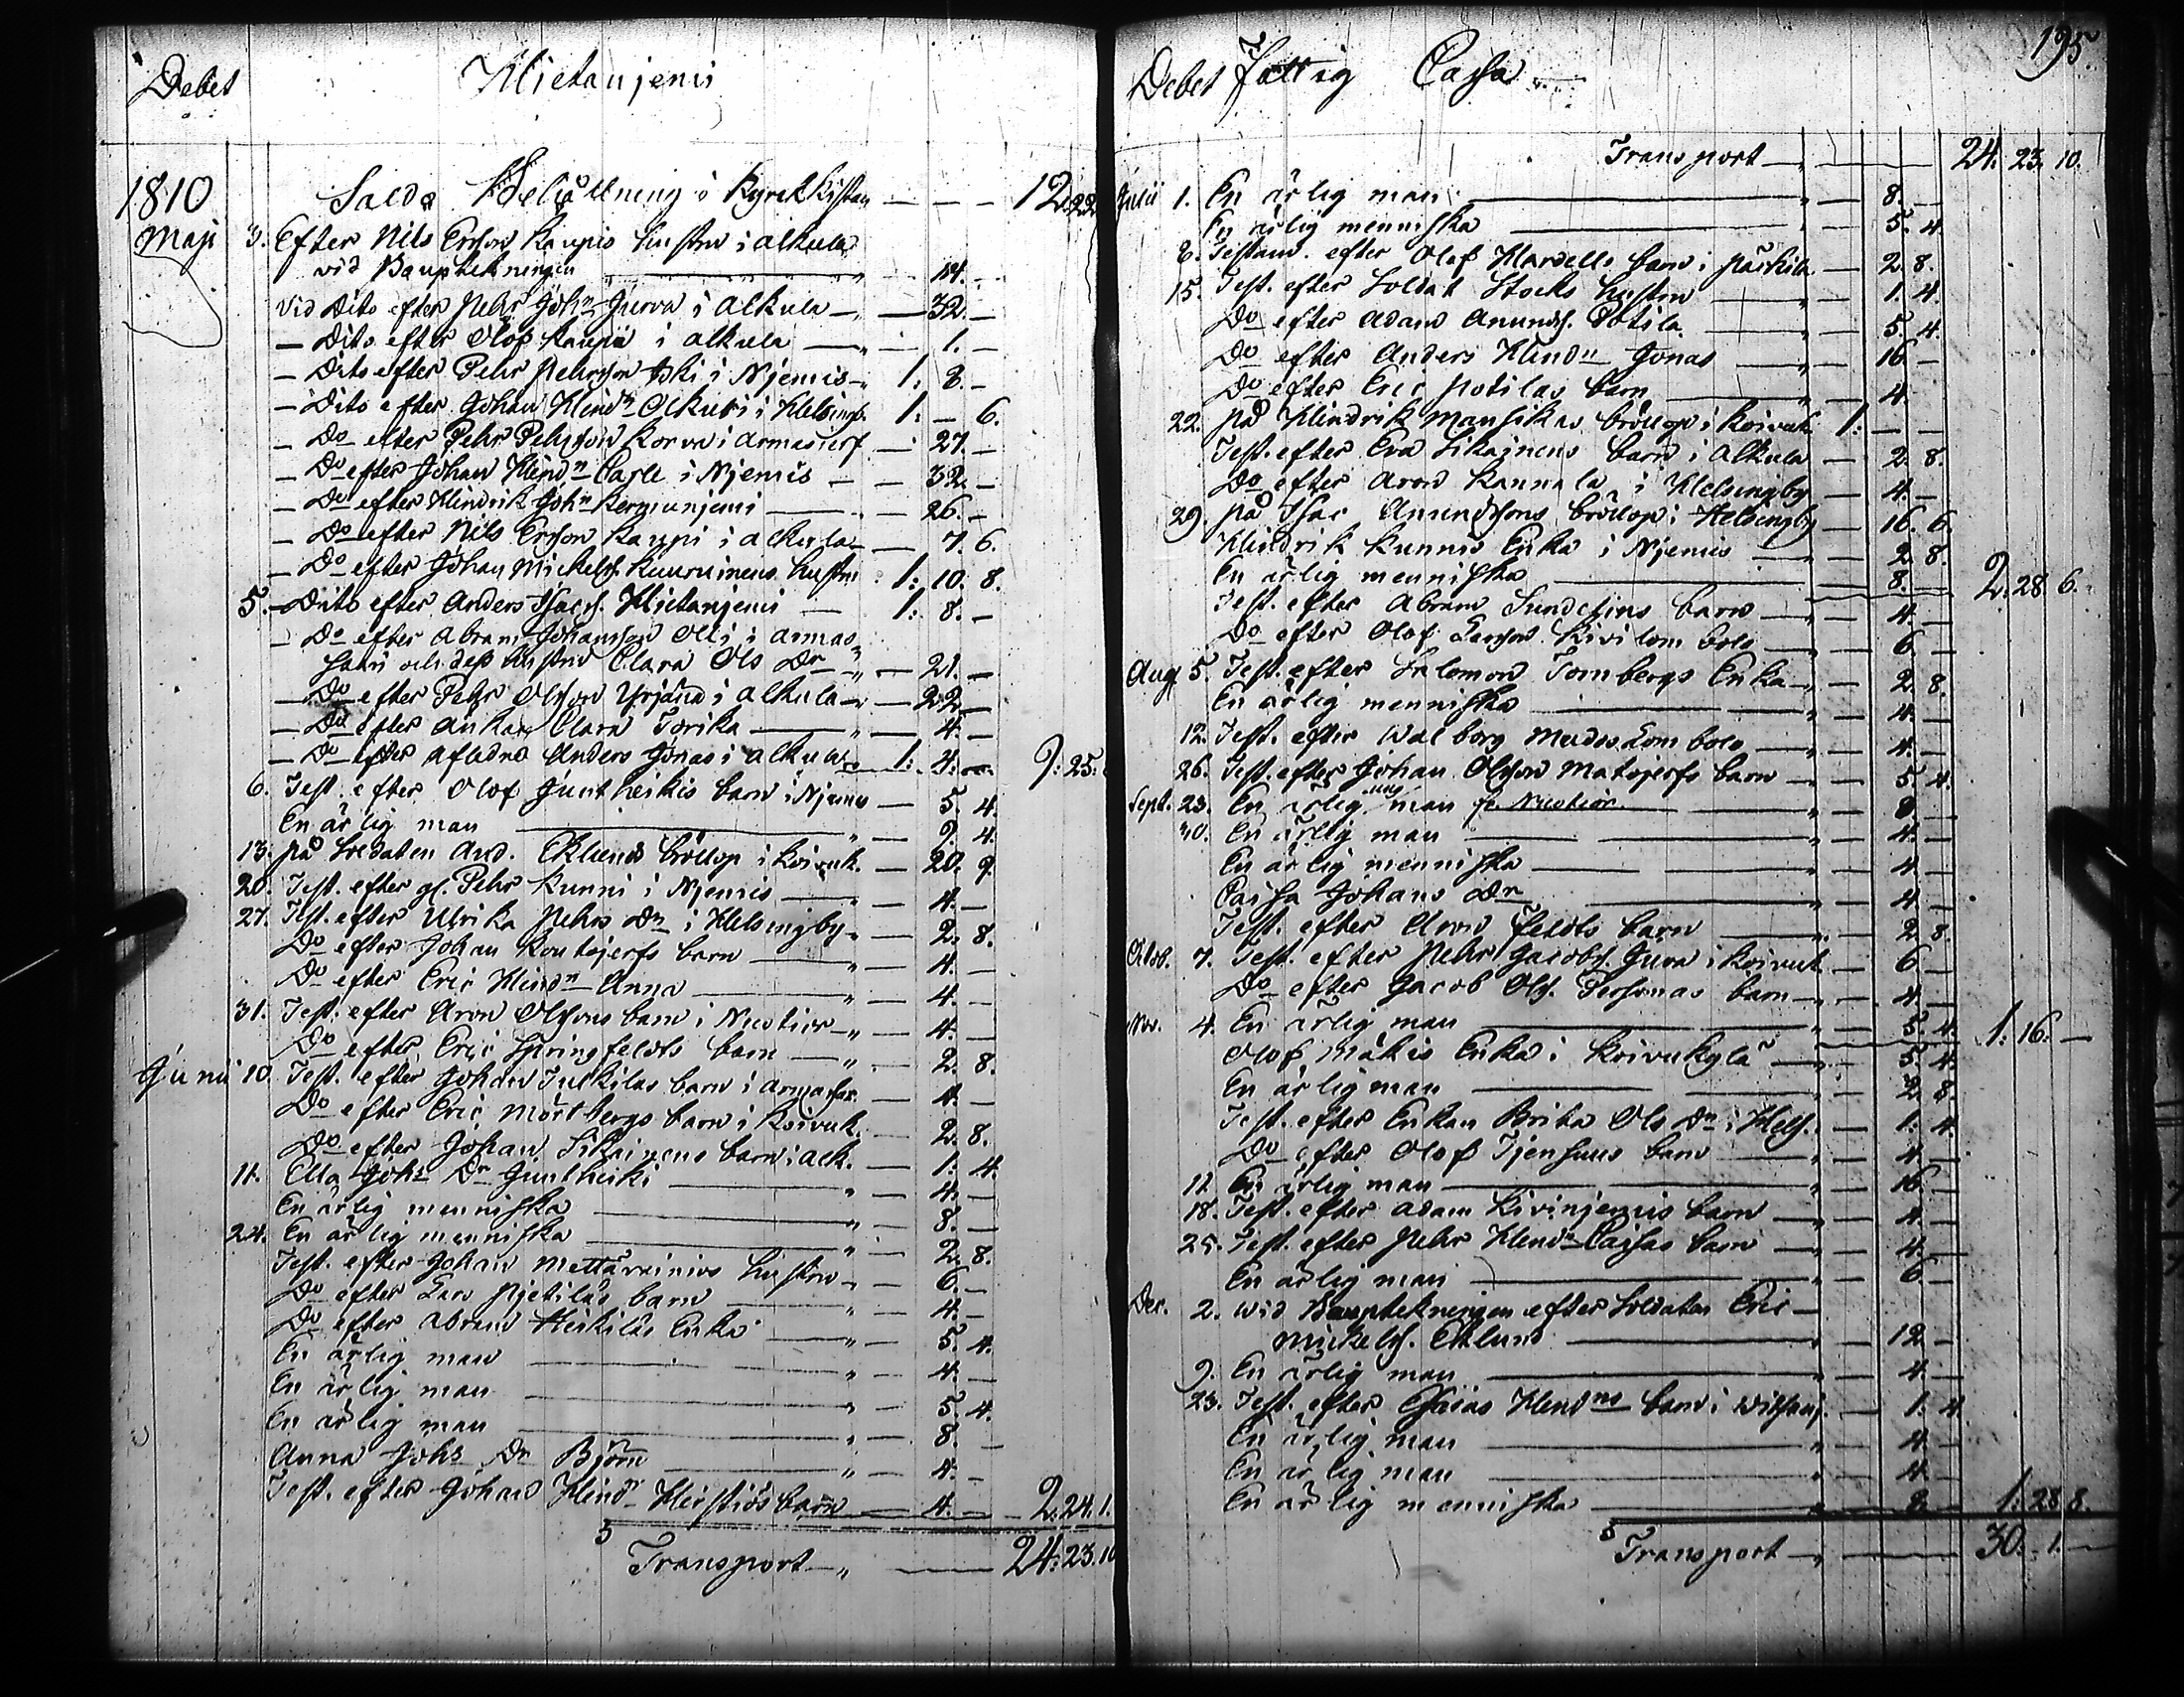 Debet Hietanjemi
1810 Saldo Behållning i Kyrckkistan — — — 12. 22
Maji 3. Efter Nils Ersson Kaupis hustru i alkula
vid Bauptekningen — 14. —
Vid Dito efter Pehr Johns Jurva i Alkula — 32. —
— Dito efter Olof Kaupii i alkula — 1. —
— Dito efter Pehr Pehrsson i Njemis — 1: 8. —
— Dito efter Johan Hindn Olkuri i Helsingb. 1: — 6.
— Do efter Pehr Pehrsson Korva i armasjerf — 27. —
— Do efter Johan Hindn Carle i Njemis — — 32. —
— Do efter Hindrik John Kermunjemi — 26. —
— Do efter Nils Ersson Kaupi i alkula — 7. 6.
— Do efter Johan Mickels. Kuuruinens hustru 1: 10. 8.
5. — Dito efter Anders Isacs. Hietanjemi — 1: 8. —
— Do efter Abram Johansson Olli i armas
saari och dess hustru Clara Ols Dr — 21. —
— Do efter Pehr Olsson Yrjänä i alkula — 22. —
— Do efter Enkan Clara Torika — 4. —
— Do efter afledne Anders Jonas i alkula 1: 4. — 9: 25.
6. Test. efter Olof Juntheikis barn i Njemis — 5. 4.
En ärlig man — 9. 4.
13. på Soldaten And. Eklunds bröllop i Koivuk. — 20. 9.
20. Test. efter gl. Pehr Kunni i Njemis — 4. —
27. Test. efter Ulrika Pehrs Dr i Helsingby — 2. 8.
Do efter Johan Koutojerfs barn — 4. —
Do efter Eric Hindn Anna — 4. —
31. Test. efter Aron Olssons barn i Nuotior — 4. —
Do efter Eric Springfeldts barn — 2. 8.
Junii 10. Test. efter Johan Juckilas barn i Armassar. — 4. —
Do efter Eric Mörtbergs barn i Koivuk. — 2. 8.
Do efter Johan Sikainens barn i alk. — 1. 4.
11. Ella Johs Dr Juntheiki — 4. —
En ärlig menniska — 8. —
24. En ärlig menniska — 2. 8.
Test. efter Johan Mettävainios hustru — 6. —
Do efter Lars Pjetiläs barn — 4. —
Do efter Abram Heikiläs Enka — 5. 4.
En ärlig man — 4. —
En ärlig man — 5. 4.
En ärlig man — 8. —
Anna Johs Dr Björn — 4. —
Test. efter Johan Hindr Hirstiös barn — 4. — 2. 24. 1.
Transport — 24: 23. 10
195.
Debet Fattig Cassa
Transport — 24. 23. 10.
Julii 1. En ärlig man — 8. —
En ärlig menniska — 5. 4.
8. Testam. efter Olof Mardells barn i — 2. 8.
15. Test. efter Soldat Stocks hustru — 1. 4.
Do efter Adam Anunds. Potila — 5. 4.
Do efter Anders Hindn Jonas — 16 —
Do efter Eric Potilas barn — 4. —
22. på Hindrik Mansikas bröllop i Koivuk. 1: — —
Test. efter Eva Sikainens barn i Alkula — 2. 8.
Do efter Aron Kannala i Helsingby — 4. —
29. på Isac Anundssons bröllop i Helsingby — 16. 6.
Hindrik Kunnis Enka i Njemis — 2. 8.
En ärlig menniska — 8. — 2. 28. 6.
Test. efter Abram Sundelins barn — 4. —
Do efter Olof Larsson Kivilombolo — 6 —
Aug. 5. Test. efter Salomon Tornbergs Enka — 2. 8.
En ärlig menniska — 4. —
12. Test. efter Walborg Mades Lombolo — 4. —
26. Test. efter Johan Olsson Matojerfs barn — 5. 4.
Sept. 23. En ärlig ung man fr. Nuotior — 8. —
30. En ärlig man — 4. —
En ärlig menniska — 4. —
Caisa Johans Dr — 4. —
Test. efter Aron Feldts barn — 2. 8.
Octob. 7. Test. efter Pehr Jacobs. Juva i Koivuk. — 6 —
Do efter Jacob Ols. barn — 4. —
Nov. 4. En ärlig man — 5. 4. 1: 16. —
Olof Mäkis Enka i Koivukylä — 5. 4.
En ärlig man — 2. 8.
Test. efter Enkan Brita Ols Dr i Hels. — 1. 4.
Do efter Olof Tjenhuus barn — 4. —
11 En ärlig man — 16. —
18. Test. efter Adam Kivinjemis barn — 4. —
25. Test. efter Pehr Hindn Caisas barn — 4. —
En ärlig man — 6 —
Dec. 2. Wid Bauptekningen efter Soldaten Eric
Mickels. Eklund — 12 —
9. En ärlig man — 4. —
23. Test. efter Esaias Hindns barn i — 1. 4.
En ärlig man — 4. —
En ärlig man — 4. —
En ärlig menniska — 2. — 1. 28. 8.
Transport — 30. 1. —